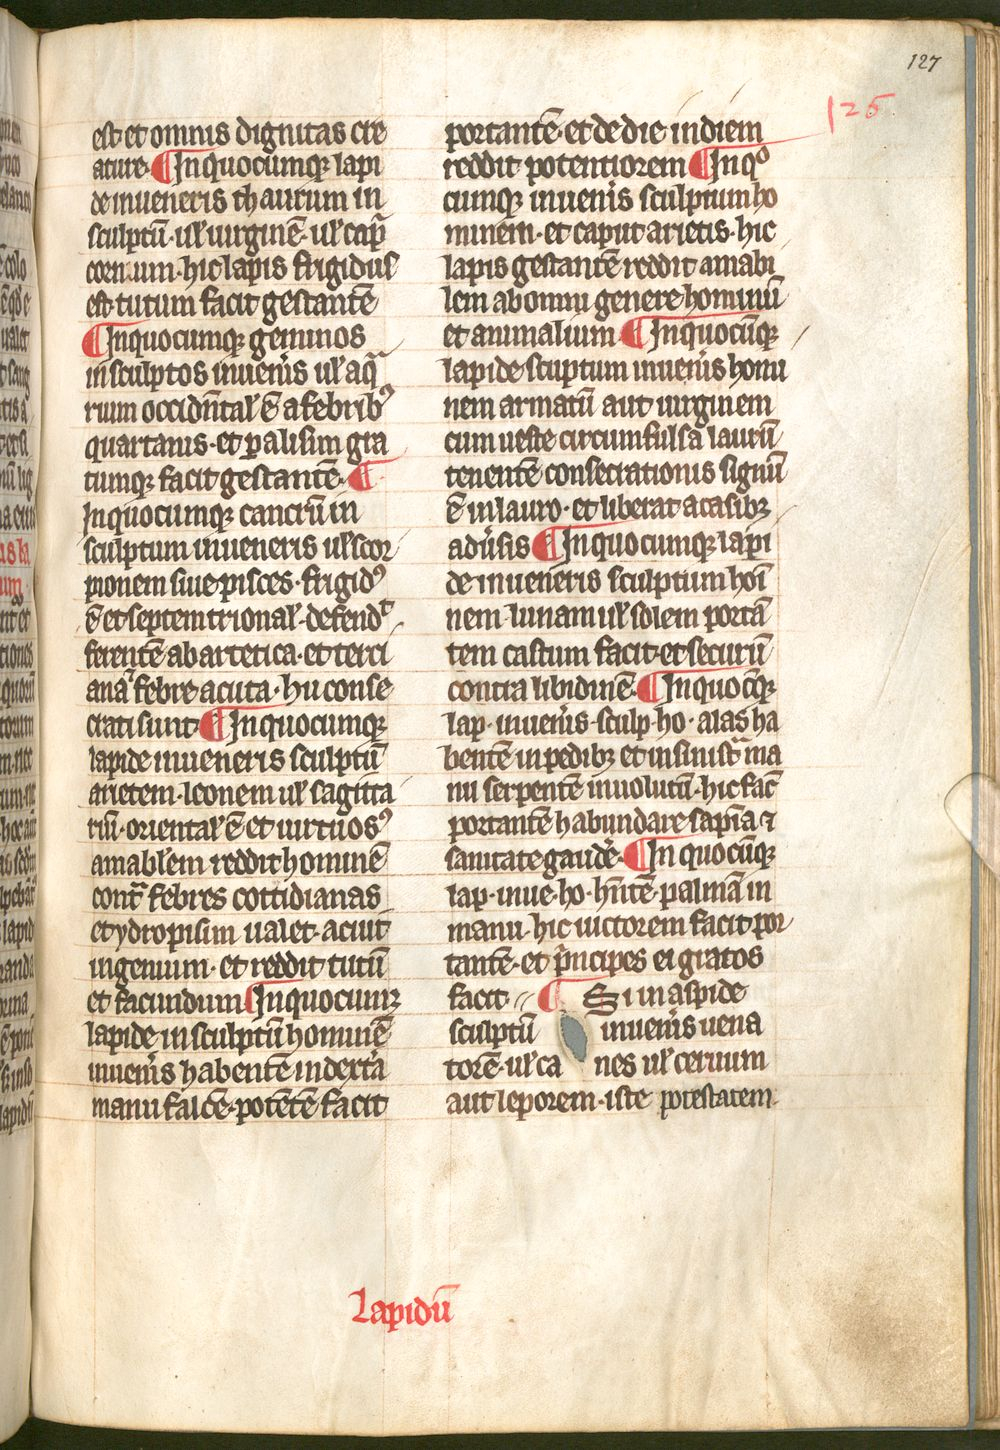 127
125
est et omnis dignitas cre
ature ¶ In quocumqꝫ lapi
de inueneris thaurum in
sculptū · ul' uirginē · ul' cap̄
cornium · hic lapis frigidus
est tutum facit gestantē
¶ In quocumqꝫ geminos
insculptos inuenīs ul' aqᷓ
rium occidn̄tal' ē a febribꝰ
quartanis · et palisim gra
tumqꝫ facit gestantē · ¶
In quocumqꝫ cancrū in
sculptum inueneris ul' scor
pionem siue pisces · frigidꝰ
ē et septemtrional' · defendᵗ
ferentē ab artetica · et terci
anaᷓ febre acuta · hii conse
crati sunt ¶ In quocumqꝫ
lapide inueneris sculptū
arietem · leonem ul' sagitta
riū · oriental' ē et uirtuosꝰ
amabl'em reddit hominē
contᷓ febres cottidianas
et ydropisim ualet · acuit
ingenium · et reddit tutū
et facundum ¶ In quocumqꝫ
lapide in sculptū hominē
inuenīs habentē in dextᷓa
manu falcē · potētē facit
portantē et de die in diem
reddit potentiorem ¶ In qᵒ
cumqꝫ inuenīs sculptum ho
minem · et caput arietis · hic
lapis gestantē reddit amabi
lem ab omni genere hominū
et animalium ¶ In quocūqꝫ
lapide scuptum inuenīs homi
nem armatū aut uirginem
cum ueste circumfulsa laurū
tenentē consecrationis signū
ē in lauro · et liberat a casibꝫ
adūsis ¶ In quocumqꝫ lapi
de inueneris sculptum hoī
nem · lunam ul' solem portā
tem castum facit · et securū
contra libidinē · ¶ In quoc̄qꝫ
lap · inuenīs · sculp · ho · alas ha
bentē in pedibꝫ et in sinistᷓ ma
nu serpentē inuolutū · hic fac̄
portantē habundare sapīa ⁊
sanitate gaudē · ¶ In quocūqꝫ
lap · inue · ho · hn̄tē palmā in
manu · hic uictorem facit por
tantē · et p̄ncipes ei gratos
facit · ¶ Si in aspide
sculptū inuenīs uena
torē · ul' ca nes ul' ceruum
aut leporem · iste potestatem
Lapidū